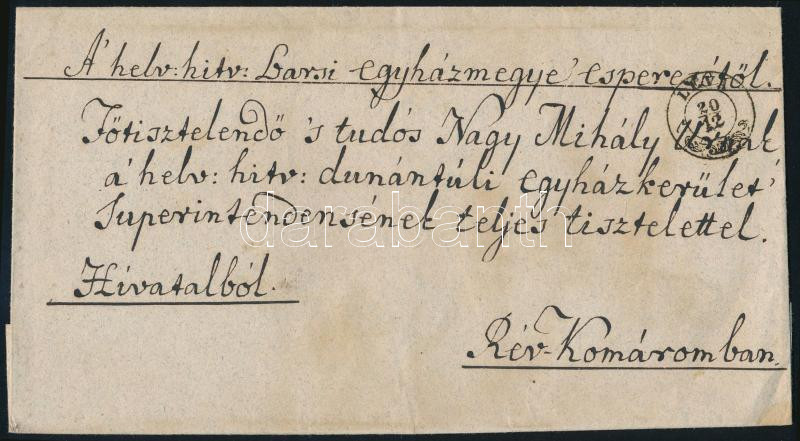 A' helv: hitv: Barsi egyházmegye' esperesétől.
Főtisztelendő 's tudós Nagy Mihály Urnak
a' helv: hitv: dunántúli egyházkerület'
Superintendensének teljes tisztelettel.
Hivatalból.
Rév-Komáromban.
20
12
darabanth